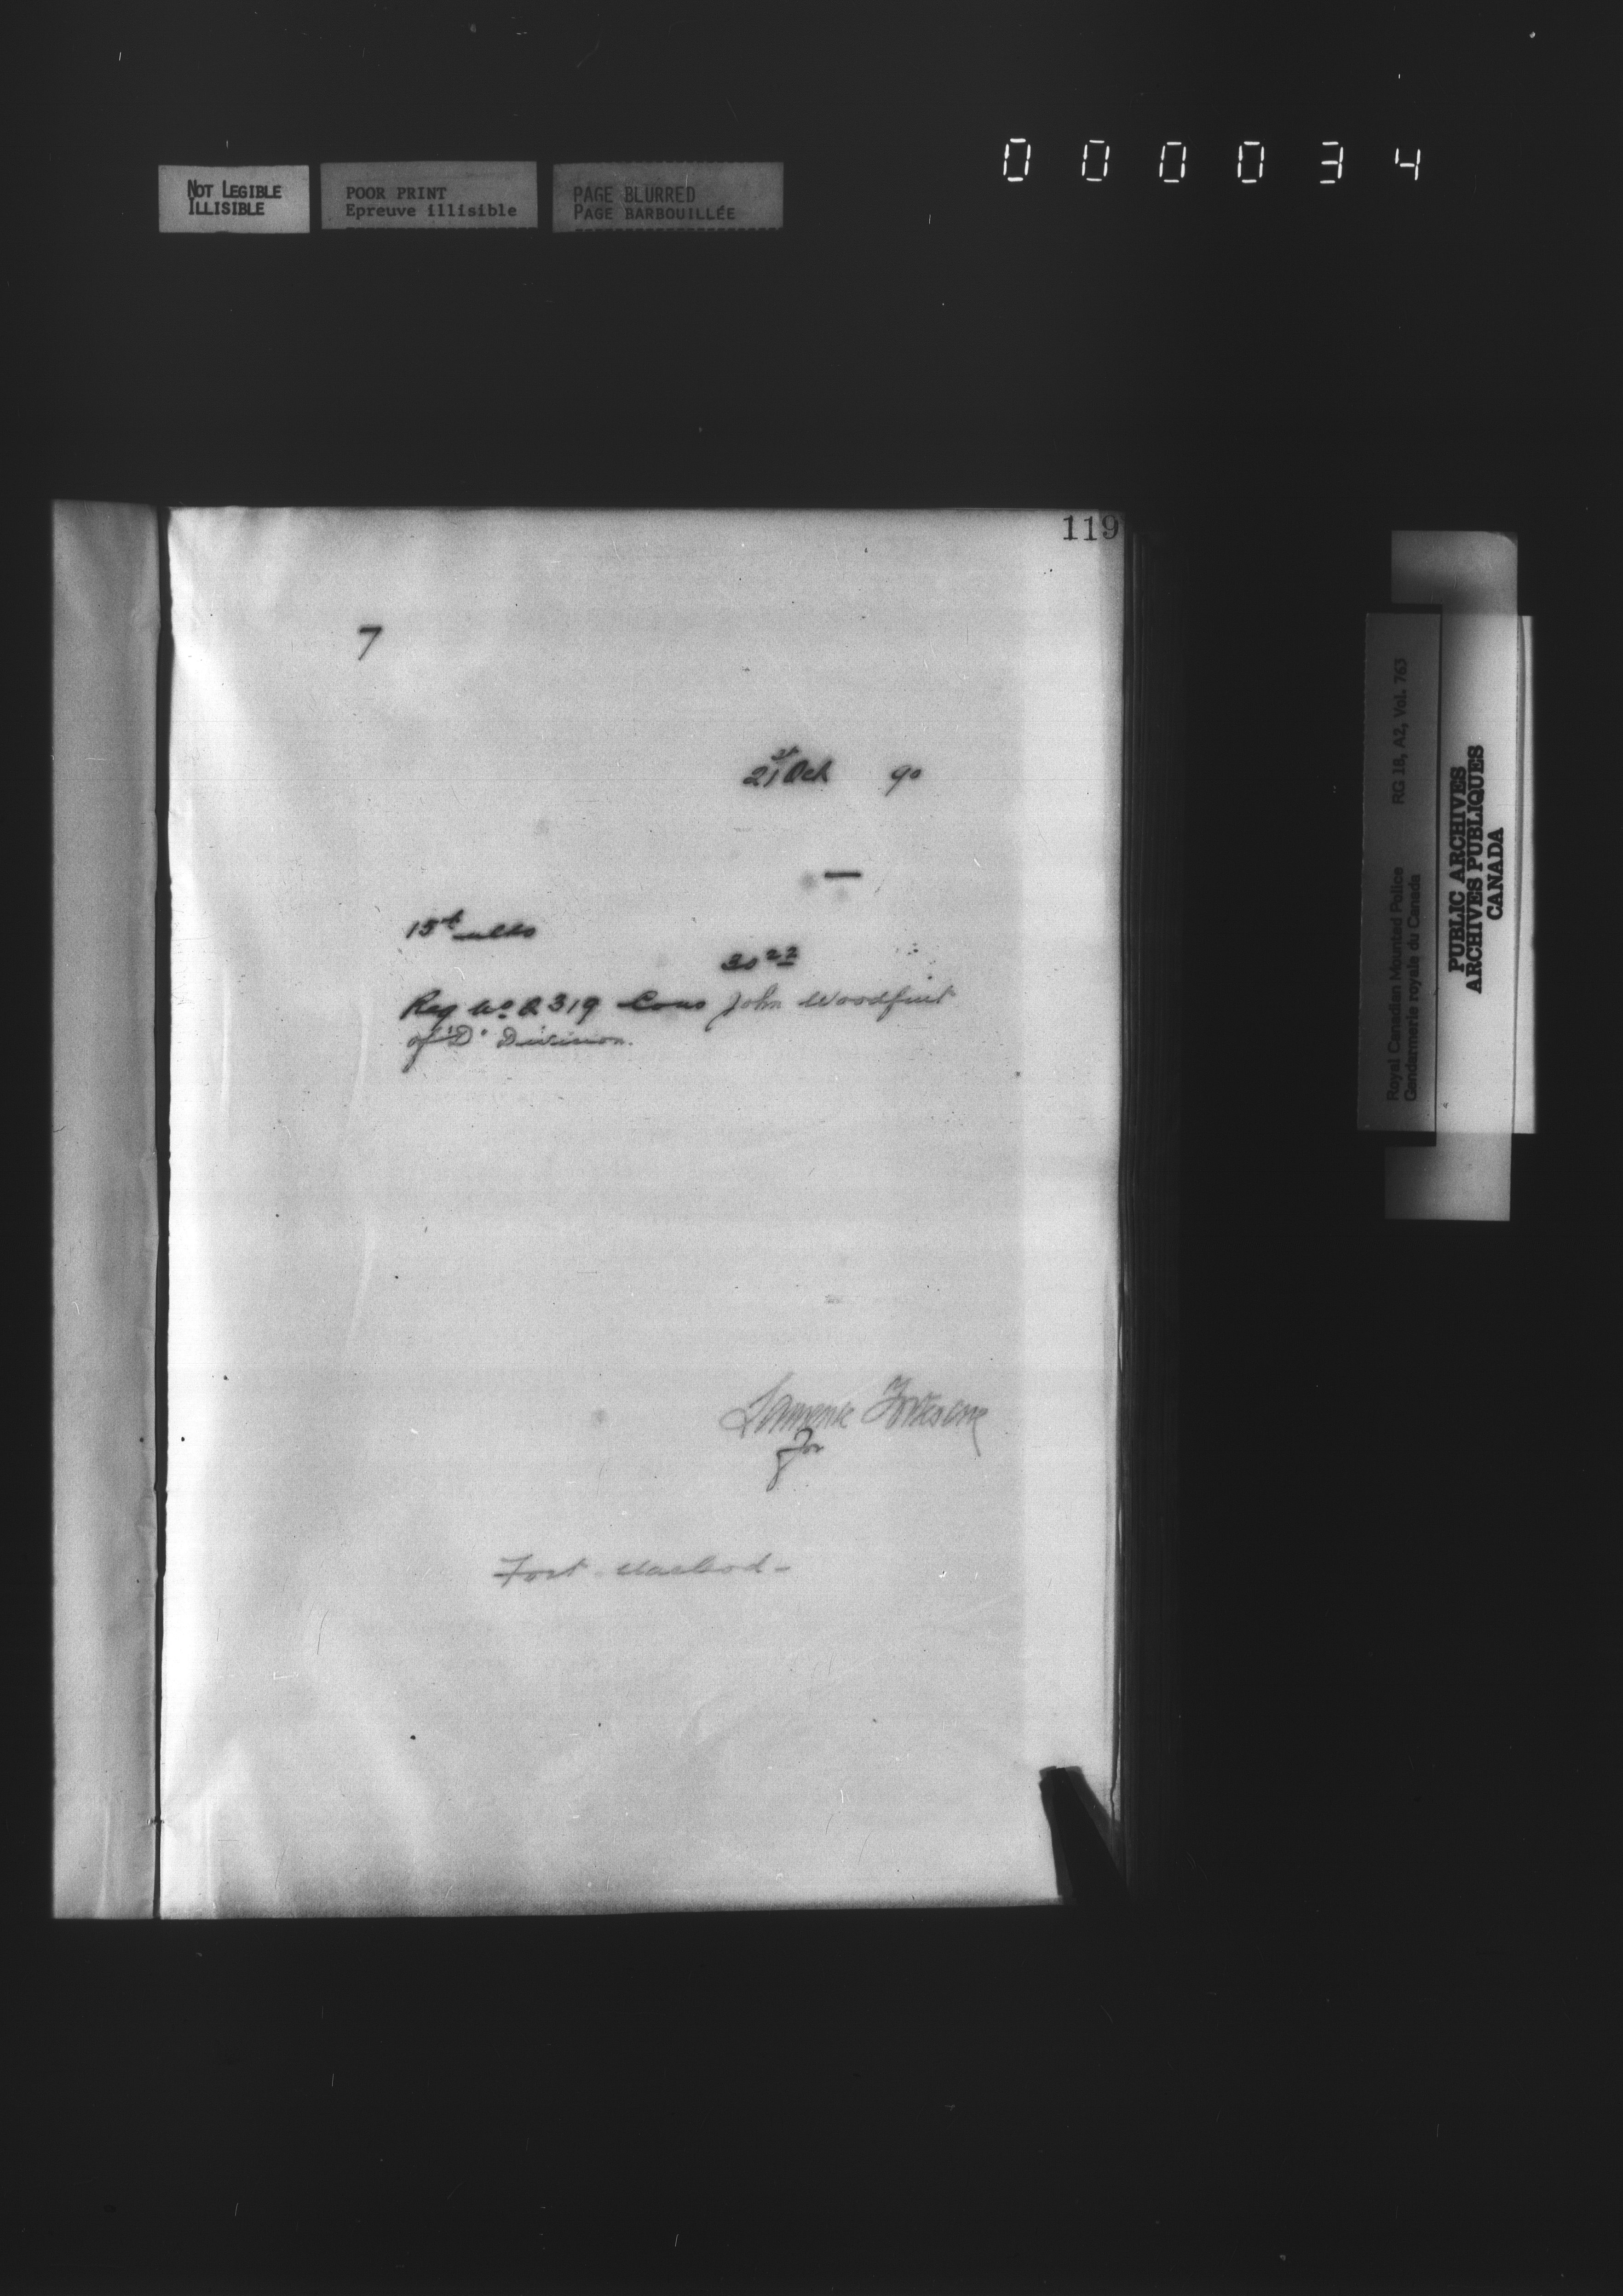 000034
NOT LEGIBLE
ILLISIBLE
POOR PRINT
Epreuve illisible
PAGE BLURRED
PAGE BARBOUILLÉE
119
7
21st Oct 90
15th ulto
30 22
Reg No. 2319 Cons John Woodfint
of "D" Division.
for
Fort Macleod -
Royal Canadian Mounted Police RG 18, A2, Vol. 763
Gendarmerie royale du Canada
PUBLIC ARCHIVES
ARCHIVES PUBLIQUES
CANADA